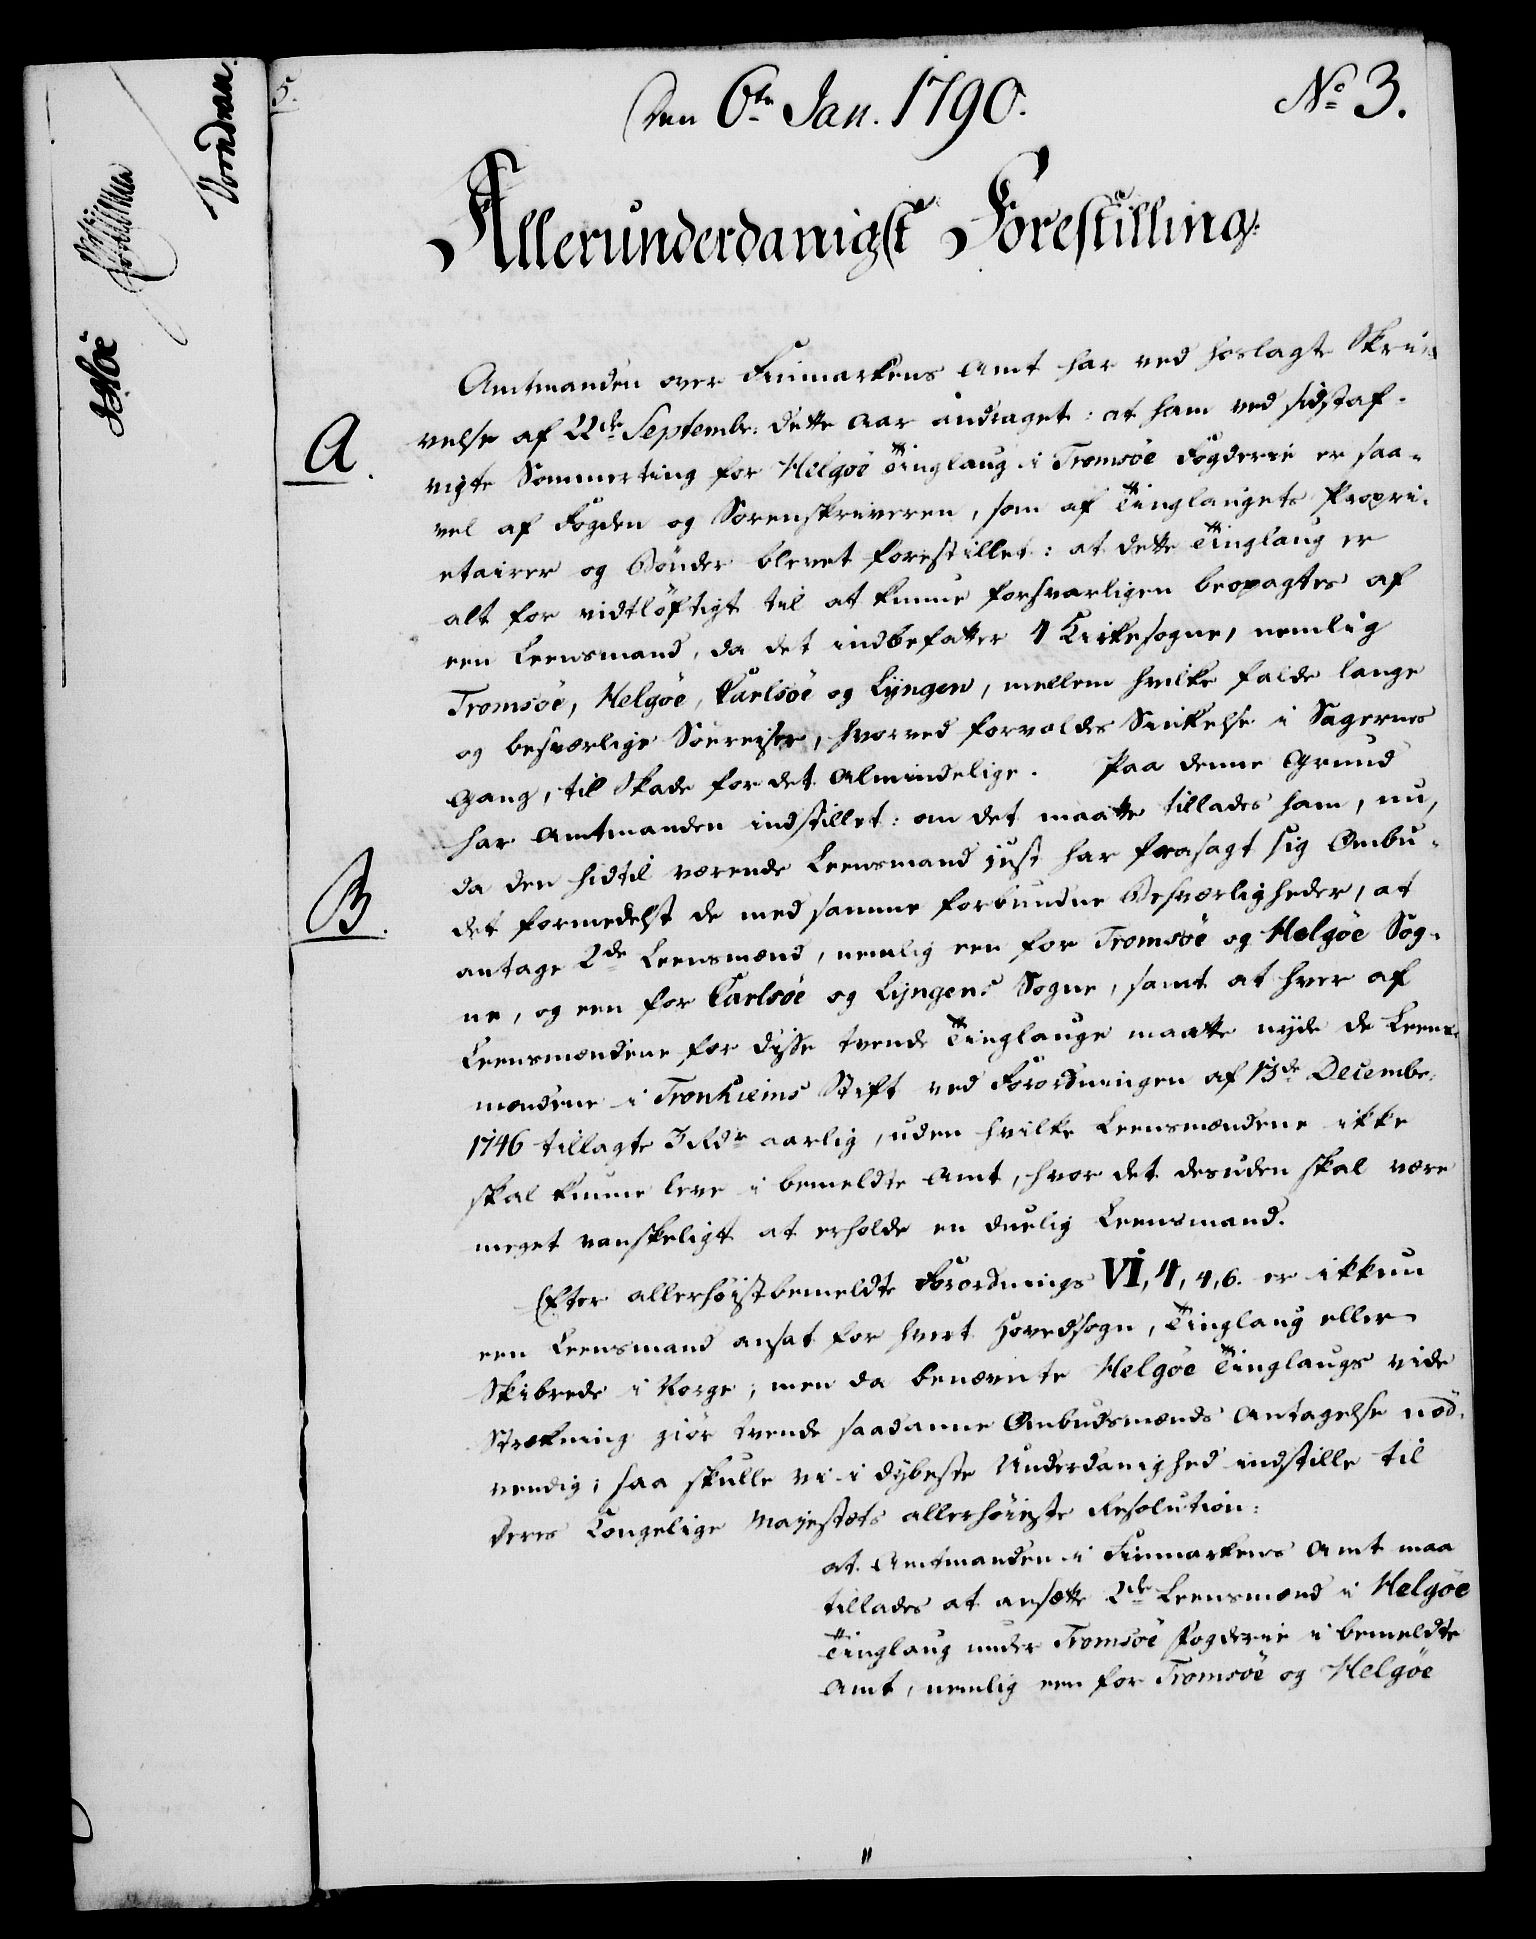 5.
Den 6te Jan. 1790.
No 3.
Allerunderdanigst Forestilling.
Amtmanden over Finmarkens Amt har ved hoslagte Skri-
A.
velse af 22de Septembr. dette Aar andraget: at ham ved sidstaf-
vigte Sommerting for Helgöe Tinglaug i Tromsöe Fogderie er saa-
vel af Fogden og Sorenskriveren, som af Tinglaugets Propri-
etairer og Bönder blevet forestillet: at dette Tinglaug er
alt for vidtlöftigt til at kunne forsvarligen beopagtes af
een Leensmand, da det indbefatter 4 Kirkesogne, nemlig
Tromsöe, Helgöe, Karlsöe og Lyngen, mellem hvilke falde lange
og besværlige Söereiser, hvorved forvoldes Sinkelse i Sagernes
Gang, til Skade for det Almindelige. Paa denne Grund
har Amtmanden indstillet: om det maatte tillades ham, nu,
da den hidtil værende Leensmand just har frasagt sig Ombu-
B.
det formedelst de med samme forbundne Besværligheder, at
antage 2de Leensmænd, nemlig een for Tromsöe og Helgöe Sog-
ne, og een for Carlsöe og Lyngens Sogne, samt at hver af
Leensmændene for disse tvende Tinglauge maatte nyde de Leens-
mændene i Tronhiems Stift ved Forordningen af 13de Decembr.
1746 tillagte 3 Rdr aarlig, uden hvilke Leensmændene ikke
skal kunne leve i bemeldte Amt, hvor det desuden skal være
meget vanskeligt at erholde en duelig Leensmand.
Efter allerhöistbemeldte Forordnings VI, 4, 4, 6. er ikkun
een Leensmand ansat for hvert Hovedsogn, Tinglaug eller
Skibrede i Norge; men da benævnte Helgöe Tinglaugs vide
Strækning giör tvende saadanne Ombudsmænds Antagelse nöd-
vendig; saa skulle vi i dybeste Underdanighed indstille til
Deres Kongelige Majestæts allerhöieste Resolution:
at Amtmanden i Finmarkens Amt maa
tillades at ansætte 2de Leensmænd i Helgöe
Tinglaug under Tromsöe Fogderie i bemeldte
Amt, nemlig een for Tromsöe og Helgöe